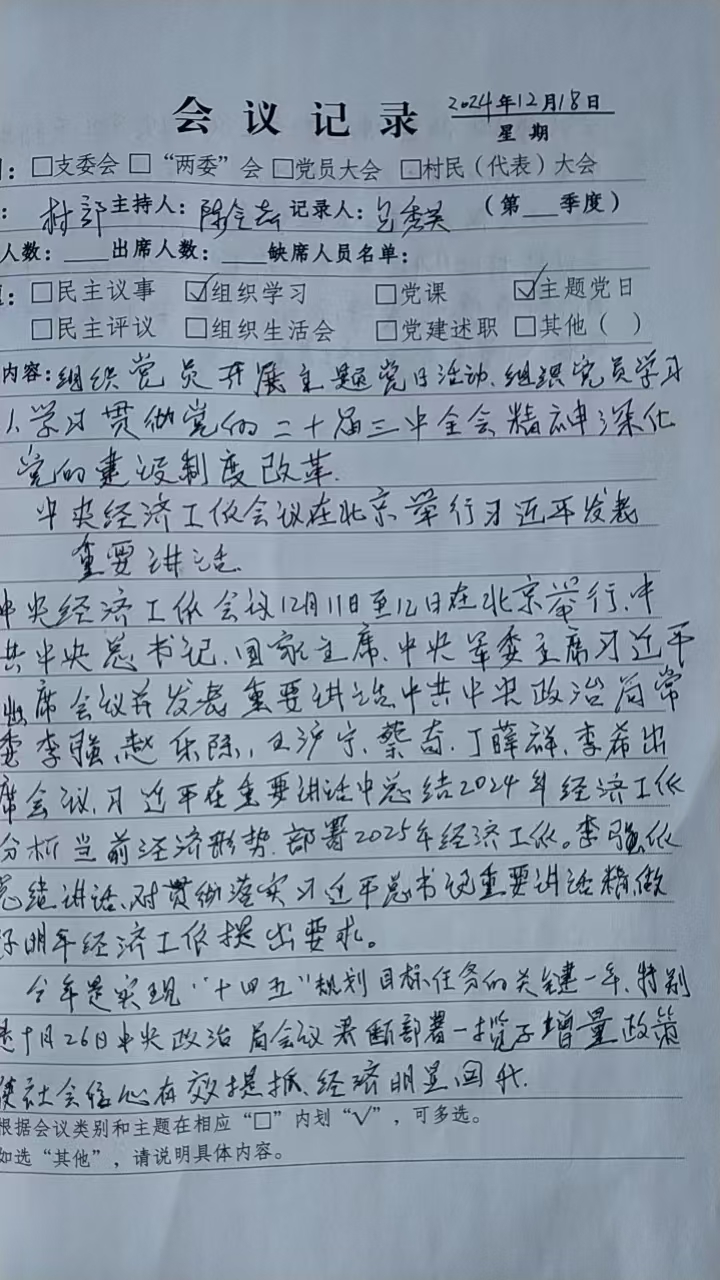 会议记录 2024年12月18日
星期
：□支委会 □“两委”会 □党员大会 □村民（代表）大会
：村部 主持人： 记录人： （第___季度）
人数：___出席人数：___ 缺席人员名单：
：□民主议事 ☑组织学习 □党课 ☑主题党日
□民主评议 □组织生活会 □党建述职 □其他（ ）
内容：组织党员开展主题党日活动、组织党员学习
1、学习贯彻党的二十届三中全会精神深化
党的建设制度改革.
中央经济工作会议在北京举行习近平发表
重要讲话.
中央经济工作会议12月11日至12日在北京举行.中
共中央总书记、国家主席、中央军委主席习近平
出席会议并发表重要讲话中共中央政治局常
委李强、赵乐际、王沪宁、蔡奇、丁薛祥、李希出
席会议、习近平在重要讲话中总结2024年经济工作
分析当前经济形势.部署2025年经济工作。李强作
总结讲话、对贯彻落实习近平总书记重要讲话精做
好明年经济工作提出要求。
今年是实现“十四五”规划目标任务的关键一年、特别
是9月26日中央政治局会议果断部署一揽子增量政策
使社会信心有效提振、经济明显回升.
根据会议类别和主题在相应“□”内划“√”，可多选。
如选“其他”，请说明具体内容。